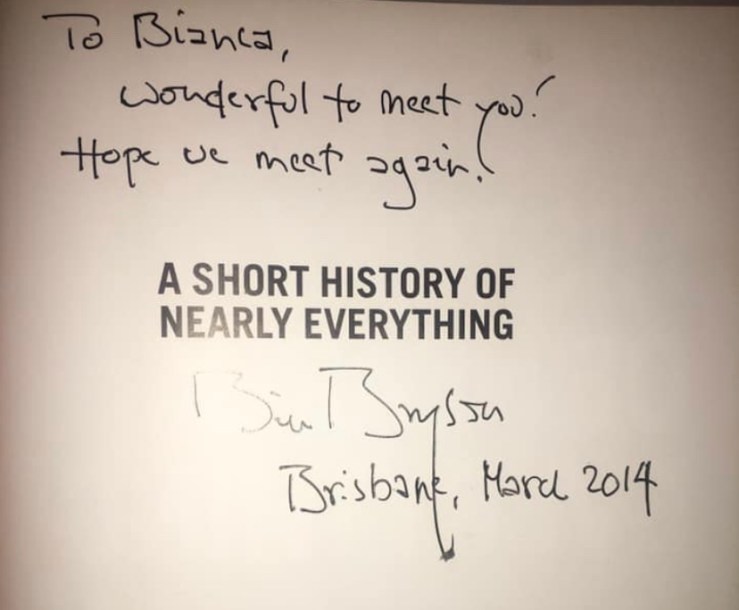 To Bianca,
wonderful to meet you!
Hope we meet again!
A SHORT HISTORY OF
NEARLY EVERYTHING
Bill Bryson
Brisbane, March 2014